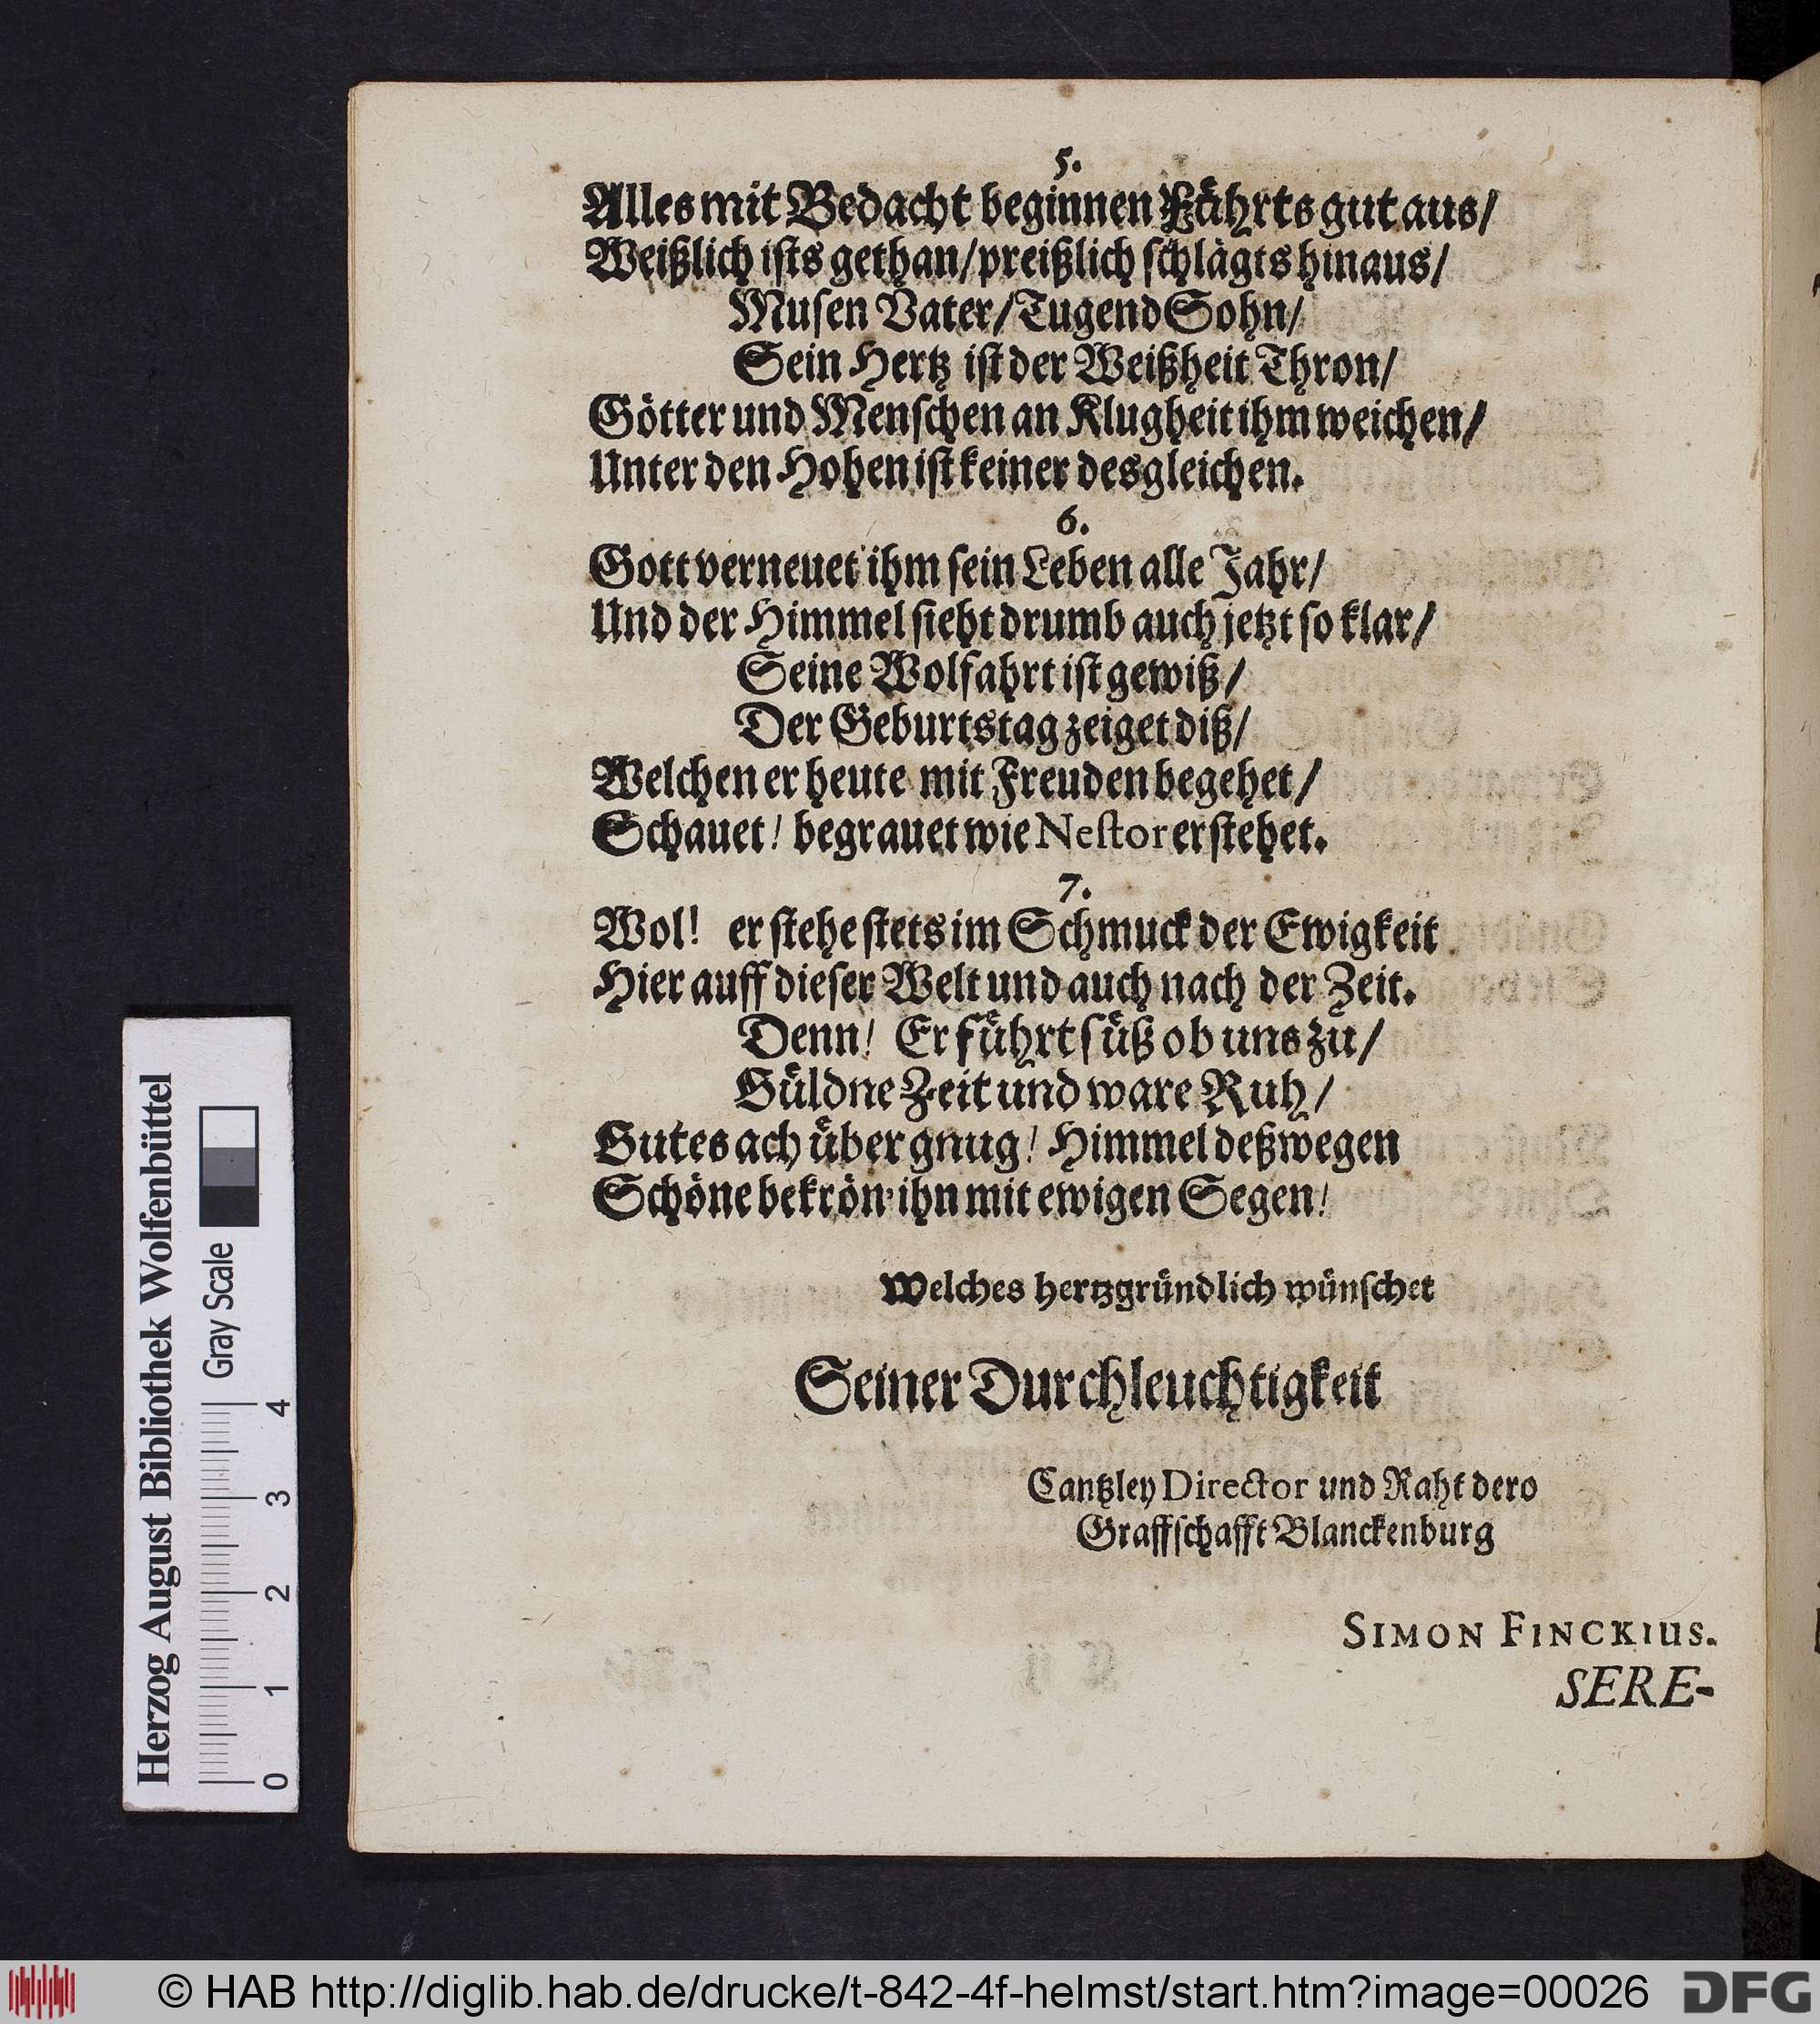 5.
Alles mit Bedacht beginnen Fährts gut aus/
Weißlich ists gethan/ preißlich schlägts hinaus/
Musen Vater/ Tugend Sohn/
Sein Hertz ist der Weißheit Thron/
Götter und Menschen an Klugheit ihm weichen/
Unter den Hohen ist keiner desgleichen.
6.
Gott verneuet ihm sein Leben alle Jahr/
Und der Himmel sieht drumb auch jetzt so klar/
Seine Wolfahrt ist gewiß/
Der Geburtstag zeiget diß/
Welchen er heute mit Freuden begehet/
Schauet! begrauet wie Nestor er stehet.
7.
Wol! er stehe stets im Schmuck der Ewigkeit
Hier auff dieser Welt und auch nach der Zeit.
Denn! Er führt süß ob uns zu/
Güldne Zeit und ware Ruh/
Gutes ach über gnug! Himmel deßwegen
Schöne bekrön' ihn mit ewigen Segen!
Welches hertzgründlich wünschet
Seiner Durchleuchtigkeit
Cantzley Director und Raht dero
Graffschafft Blanckenburg
SIMON FINCKIUS.
SERE-
Herzog August Bibliothek Wolfenbüttel
Gray Scale
0 1 2 3 4
© HAB http://diglib.hab.de/drucke/t-842-4f-helmst/start.htm?image=00026
DFG